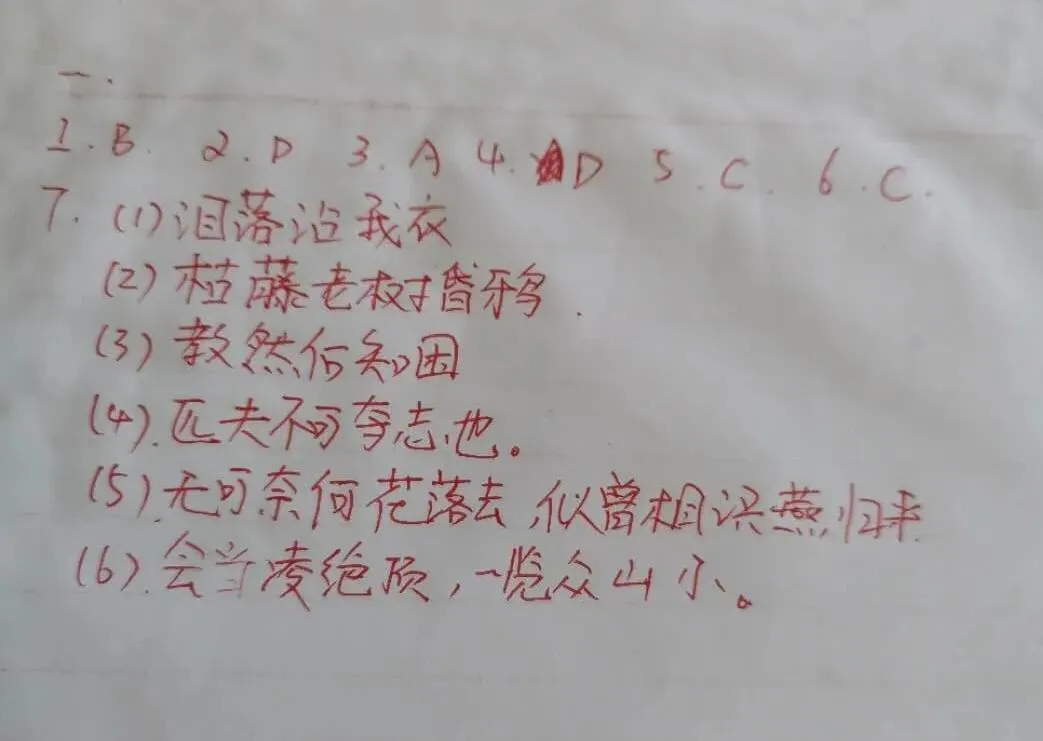 一.
1. B. 2. D 3. A 4. D 5. C. 6. C.
7. (1) 泪落沾我衣
(2) 枯藤老树昏鸦.
(3) 教然后知困
(4). 匹夫不可夺志也。
(5). 无可奈何花落去,似曾相识燕归来.
(6). 会当凌绝顶,一览众山小。